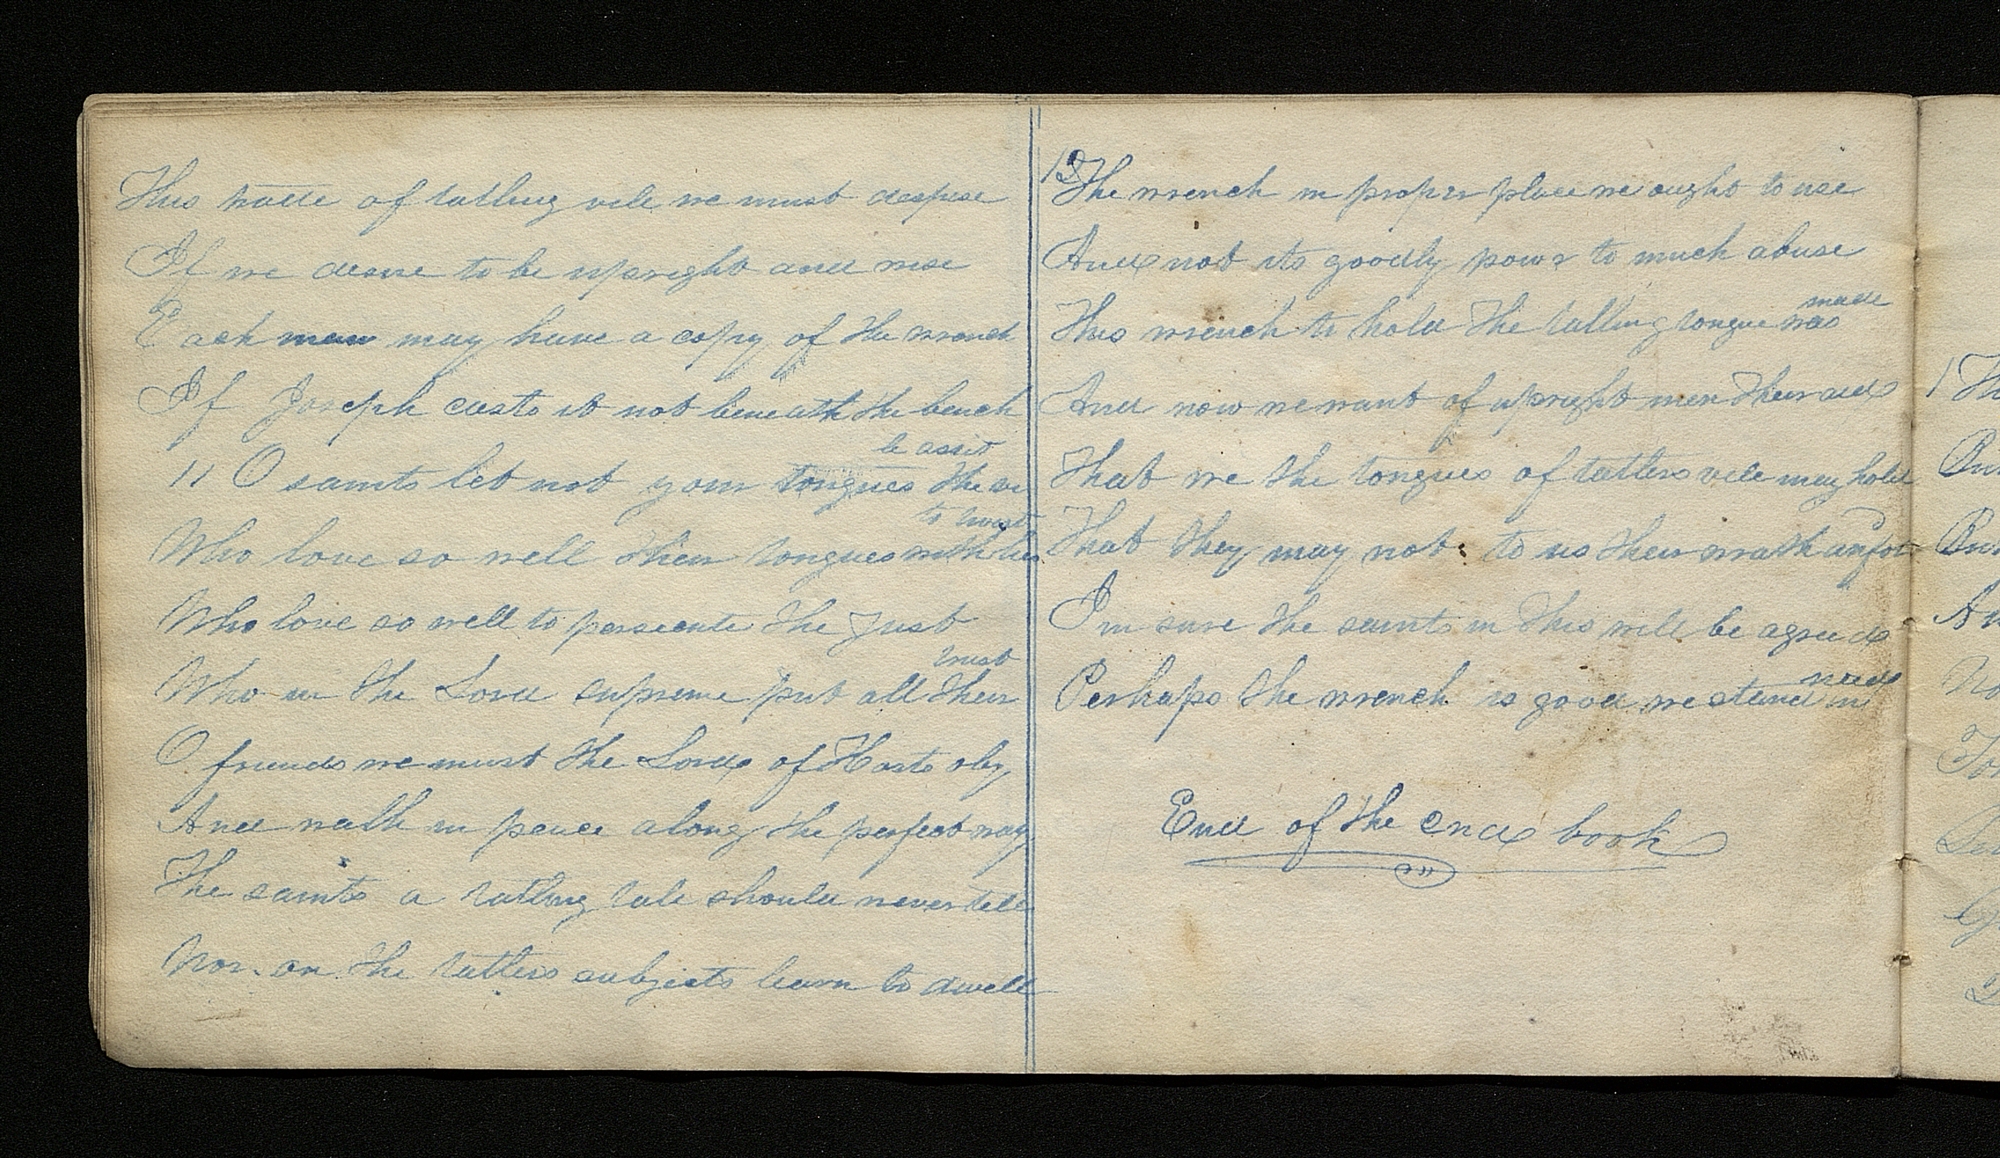 This trade of tatling vile we must despise
If we desire to be upright and wise
Each man may have a copy of the wrench
If Joseph casts it not beneath the bench
11 O saints let not your tongues the
be assist
Who love so well their tongues with lies
to twist
Who love so well to persecute the just
Who in the Lord supreme put all their
trust
O friends we must the Lord of Hosts oby
And walk in peace along the perfect way
The saints a tatling tale should never tell
Nor on the tatlers subjects learn to dwell
12 The wrench in proper place we ought to use
And not its goodly power to much abuse
This wrench to hold the tatling tongue was
made
And now we want of upright men their aid
That we the tongues of tatlers vile may hold
That they may not to us their wrath unfo
I'm sure the saints in this will be agreed
Perhaps the wrench is good we stand in
need
End of the 2nd book